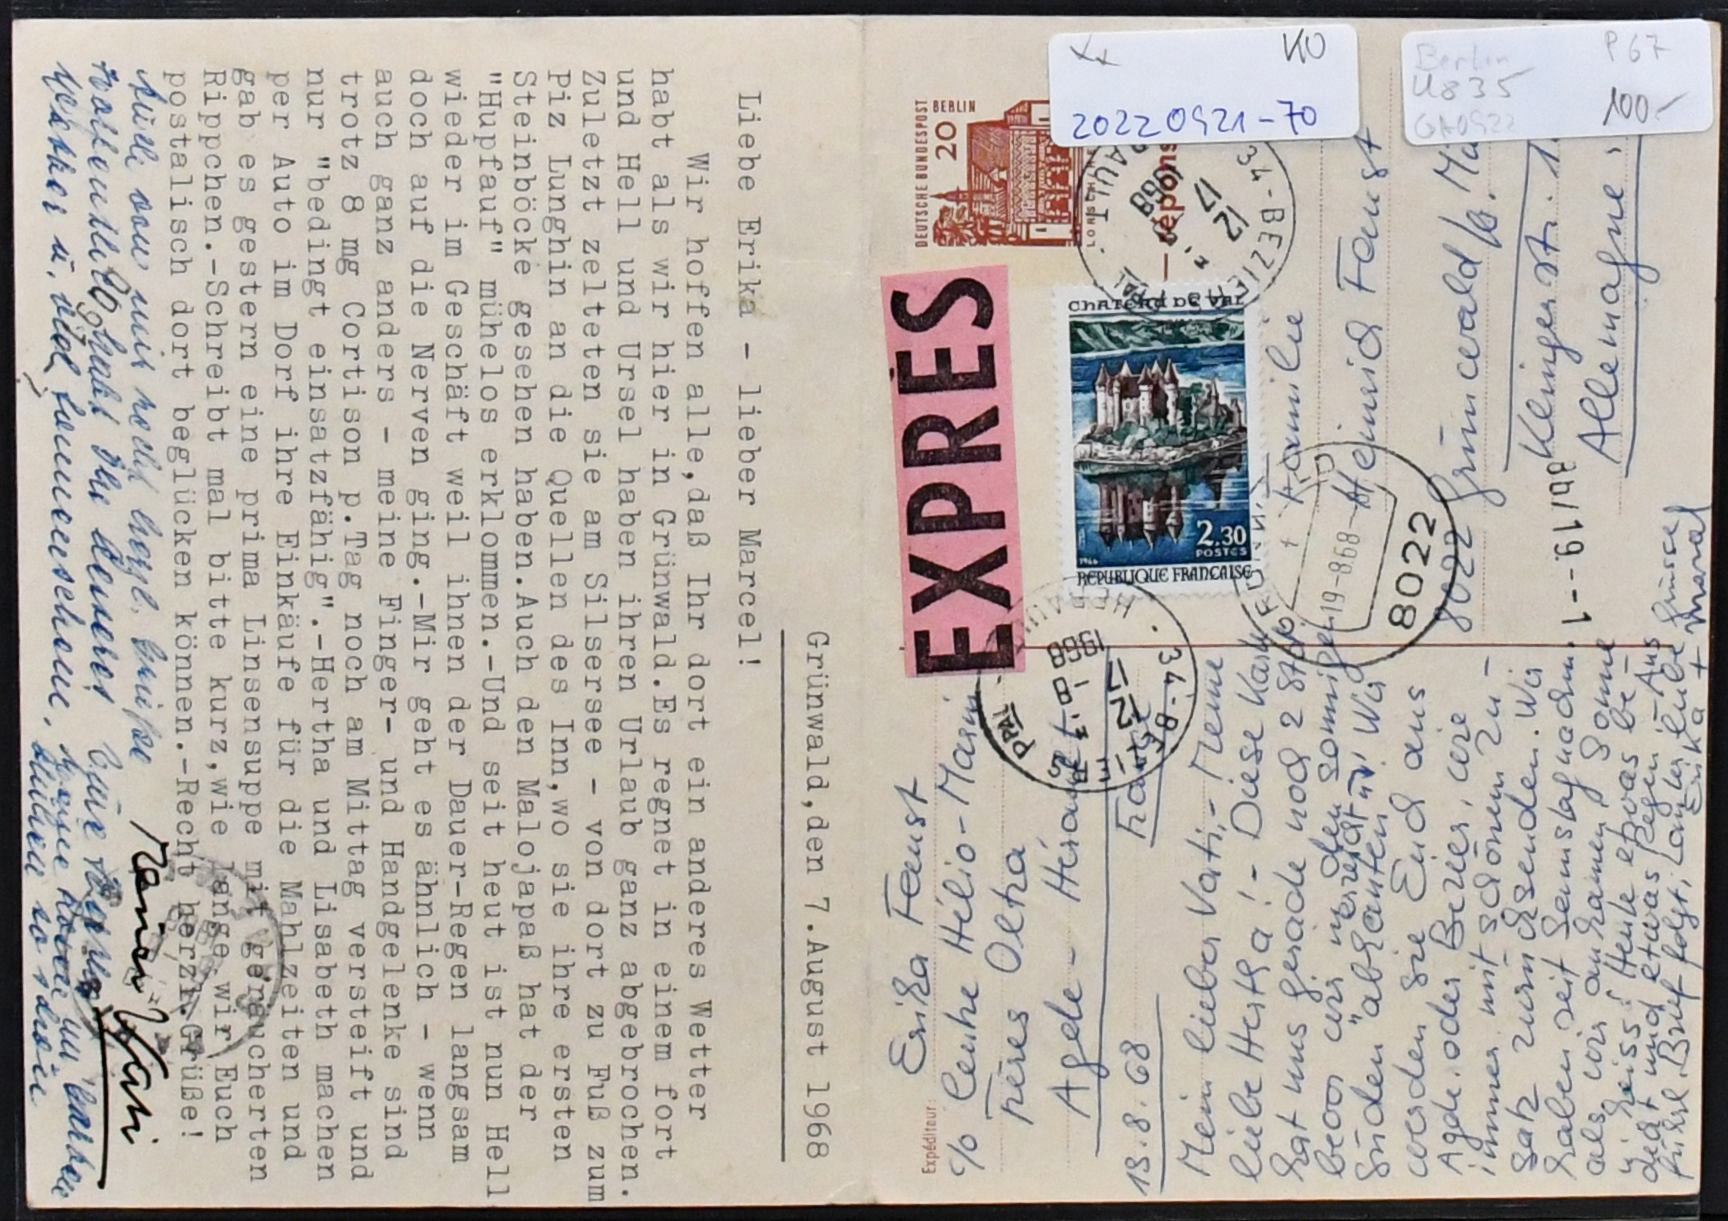 Grünwald,den 7.August 1968
Liebe Erika - lieber Marcel!
Wir hoffen alle,daß Ihr dort ein anderes Wetter
habt als wir hier in Grünwald.Es regnet in einem fort
und Hell und Ursel haben ihren Urlaub ganz abgebrochen.
Zuletzt zelteten sie am Silsersee - von dort zu Fuß zum
Piz Lunghin an die Quellen des Inn,wo sie ihre ersten
Steinböcke gesehen haben.Auch den Malojapaß hat der
"Hupfauf" mühelos erklommen.-Und seit heut ist nun Hell
wieder im Geschäft weil ihnen der Dauer-Regen langsam
doch auf die Nerven ging.-Mir geht es ähnlich - wenn
auch ganz anders - meine Finger- und Handgelenke sind
trotz 8 mg Cortison p.Tag noch am Mittag versteift und
nur "bedingt einsatzfähig".-Hertha und Lisabeth machen
per Auto im Dorf ihre Einkäufe für die Mahlzeiten und
gab es gestern eine prima Linsensuppe mit geräucherten
Rippchen.-Schreibt mal bitte kurz,wie lange wir Euch
postalisch dort beglücken können.-Recht herzl.Grüße!
Auch von mir recht herzl. Grüße
DEUTSCHE BUNDESPOST BERLIN
20
réponse
EXPRÈS
CHATEAU DE VAL
2.30
POSTES
1966
REPUBLIQUE FRANÇAISE
34-BEZIERS
HERAULT
12 H
17 - 8
1968
PPAL
Familie
Heinrich Faust
8022 Grünwald b. Mü
Klingerstr. 1
Allemagne
19-8.68
8022
34-BEZIERS
12 H
17 - 8
1968
PPAL
Expéditeur:
Erika Faust
c/o Centre Hélio-Marin
Frères Oltra
Agde - Hérault
France
13.8.68
Mein lieber Vati, - Meine
liebe Hertha! - Diese Karte
hat uns gerade noch 2 Std
bevor wir in den sonnigen
Süden "abhauten" erreicht. Wir
werden sie Euch aus
Agde oder Bezier, wie
immer mit schönem Zu-
satz zurücksenden. Wir
haben seit Samstagnachm.
als wir ankamen, Sonne
heiss! Heute etwas be-
deckt und etwas Regen. Aus
führl. Brief folgt, liebe
Grüsse
Erika + Marcel
KO
20220921-70
Berlin P67
U835 100.-
GA0922